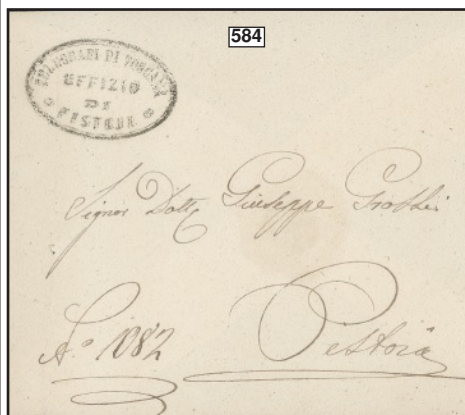 584
TELEGRAFI DI TOSCANA
UFFIZIO
DI
PISTOJA
Signor Dott. Giuseppe
N.° 1082
Pistoia